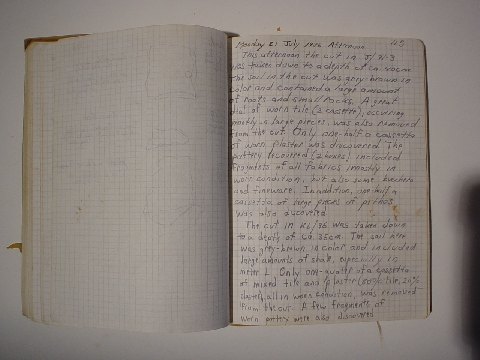 Monday 21 July Afternoon 115
This afternoon the cut in J/
was taken down to a depth of ca.
the soil in the cut was grey-brown in
color and contained a large amount
of roots and small rocks. A great
deal of worn tile (2 cassette), occuring
mostly in large pieces, was also removed
from the cut. Only one-half a cassetta
of worn plaster was discovered. The
pottery recovered (2 boxes), included
fragments of all fabrics (mostly in
worn condition), but also some bucchero
and fineware. In addition, one-half a
cassetta of large pieces of pithos
was also discovered
The cut in KL/ was taken down
to a depth of ca. 35cm. The soil here
was grey-brown in color and included
large amounts of shale, especially in
meter L. Only one-quarter of a cassetta
of mixed tile and plaster (80% tile, 20%
plaster), all in worn condition, was removed
from the cut. A few fragments of
worn pottery were also discovered